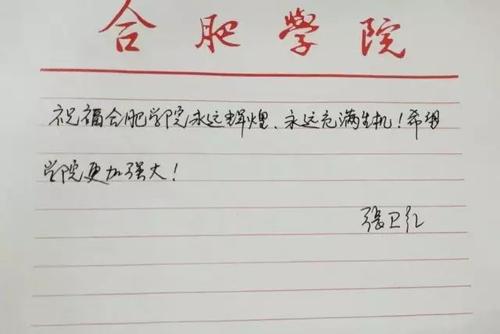 合肥學院
祝福合肥学院永远辉煌、永远充满生机！希望
学院更加强大！
张卫红